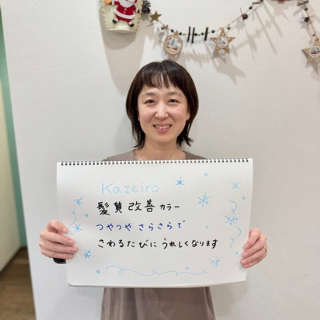 Kazeiro
髪質改善カラー
つやつや さらさらで
さわるたびに うれしくなります